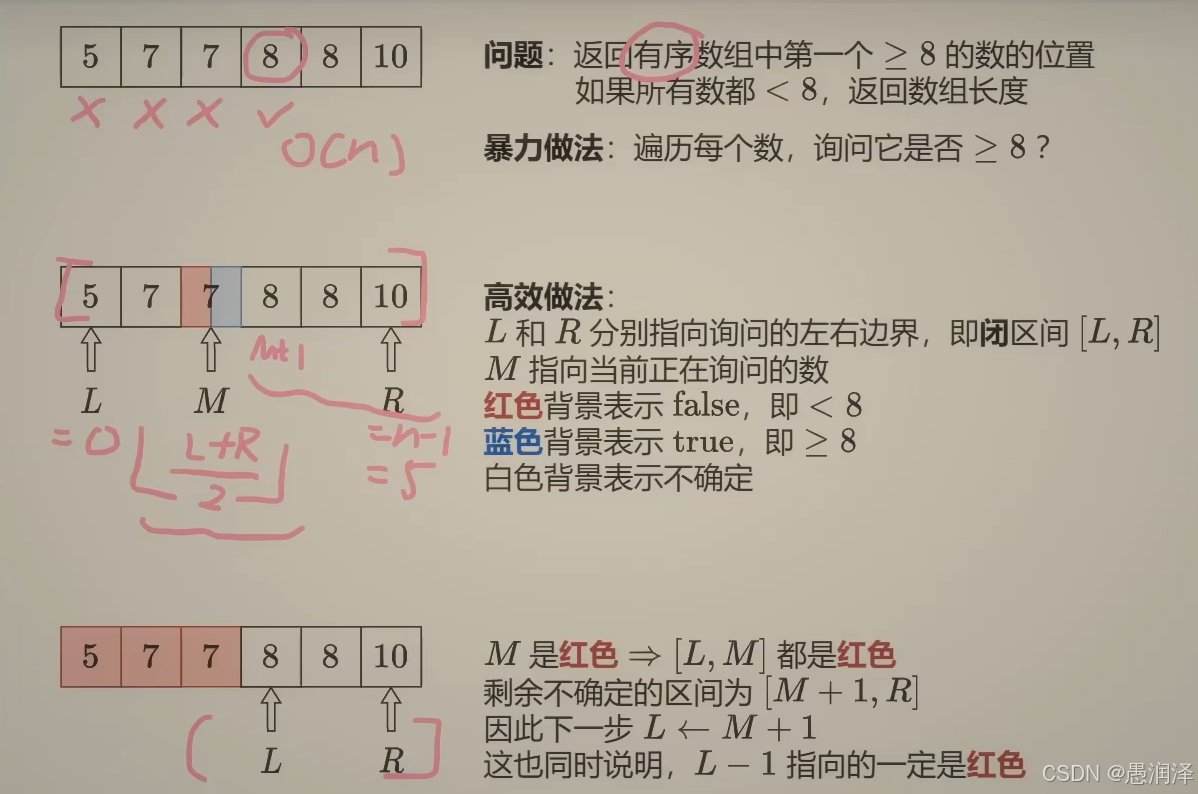 5 7 7 8 8 10
× × × ✓
O(n)
问题：返回有序数组中第一个 ≥ 8 的数的位置
如果所有数都 < 8，返回数组长度
暴力做法：遍历每个数，询问它是否 ≥ 8？
5 7 7 8 8 10
M+1
L M R
= 0 ⌊(L+R)/2⌋ = n-1
= 5
高效做法：
L 和 R 分别指向询问的左右边界，即闭区间 [L, R]
M 指向当前正在询问的数
红色背景表示 false，即 < 8
蓝色背景表示 true，即 ≥ 8
白色背景表示不确定
5 7 7 8 8 10
L R
M 是红色 ⇒ [L, M] 都是红色
剩余不确定的区间为 [M + 1, R]
因此下一步 L ← M + 1
这也同时说明，L − 1 指向的一定是红色
CSDN @愚润泽